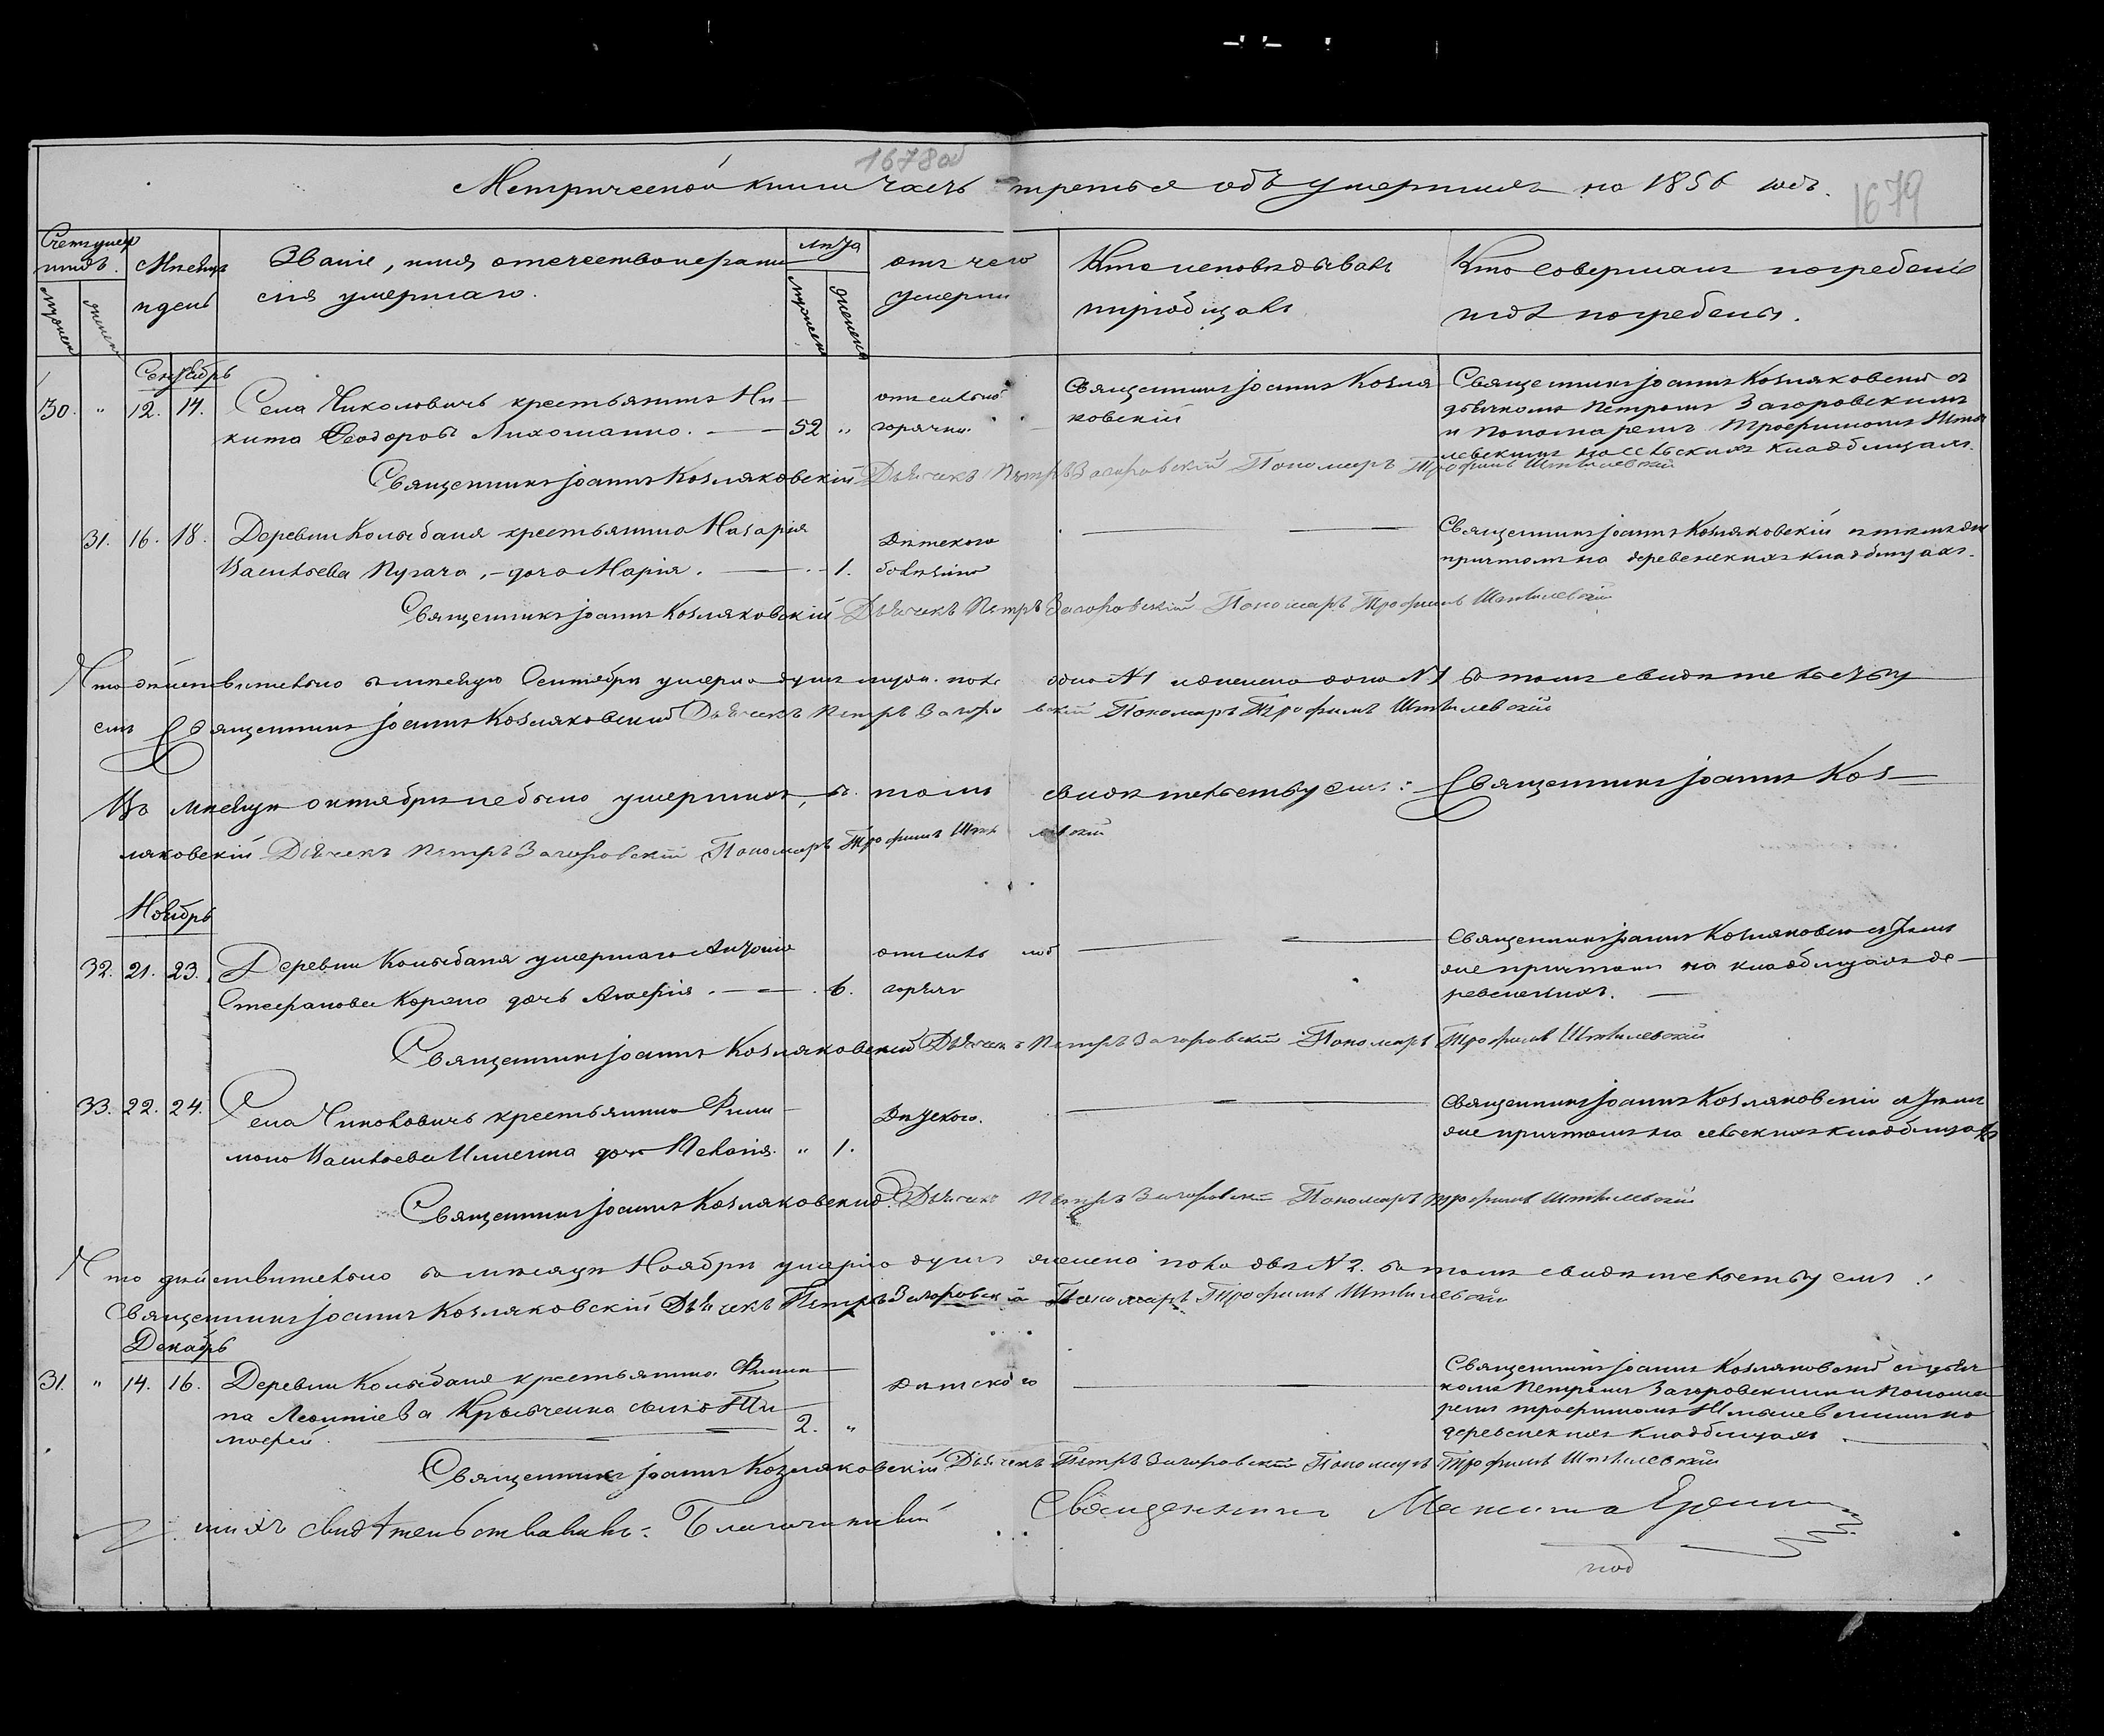 1678об
Метрической книги часть третья объ умершихъ на 1856 годъ.
1679
Счетъ умер
шихъ.
Мѣсяцъ
и день
Званіе, имя, отечество и фами
лія умершаго.
Лѣта
отъ чего
умерли
Кто исповѣдывалъ
и пріобщалъ
Кто совершалъ погребеніе
и гдѣ погребены.
мужеск
женск
мужеска
женска
Сентябрь
30. " 12. 14. Села Чиколовичъ крестьянинъ Ни-
кита Ѳеодоровъ Лихоманно. 52 "
отъ сильной
горячки.
Священникъ Іоаннъ Козля
ковскій
Священникъ Іоаннъ Козляковскій съ
дьячкомъ Петромъ Загоровскимъ
и Пономаремъ Трофимомъ
на сельскихъ кладбищахъ.
Священникъ Іоаннъ Козляковскій Дьячекъ Петръ Загоровскій Пономарь Трофимъ
31. 16. 18. Деревни Колыбаня крестьянина Назарія
Васильева Пугача, дочь Марія. 1.
Дѣтского
болѣзнію
Священникъ Іоаннъ Козляковскій
причтомъ на деревенскихъ кладбищахъ.
Священникъ Іоаннъ Козляковскій Дьячекъ Петръ Загоровскій Пономарь Трофимъ
Что дѣйствительно въ мѣсяцѣ Сентябрѣ умерло душъ мужес. пола одна №1 и женска одна №1 въ томъ свидѣтельству
емъ Священникъ Іоаннъ Козляковскій Дьячекъ Петръ Загоровскій Пономарь Трофимъ
Въ мѣсяцѣ октябрѣ не было умершихъ, въ томъ свидѣтельствуемъ: Священникъ Іоаннъ Коз-
ляковскій Дьячекъ Петръ Загоровскій Пономарь Трофимъ
Ноябрь
32. 21. 23. Деревни Колыбаня умершаго Антонія
Стефанова дочь 6.
отъ силь ной
горяч
Священникъ Іоаннъ Козляковск съ тѣмъ
же причтомъ на кладбищахъ де-
ревенскихъ.
Священникъ Іоаннъ Козляковскій Дьячекъ Петръ Загоровскій Пономарь Трофимъ
33. 22. 24. Села Чиколовичъ крестьянина Фили
мона Васильева дочь Пелагія. " 1.
Дѣтского.
Священникъ Іоаннъ Козляковскій съ тѣмъ
же причтомъ на сельскихъ кладбищахъ
Священникъ Іоаннъ Козляковскій Дьячекъ Петръ Загоровскій Пономарь Трофимъ
Что дѣйствительно въ мѣсяцѣ Ноябрѣ умерло душъ женска пола двѣ №2. въ томъ свидѣтельствуемъ:
Священникъ Іоаннъ Козляковскій Дьячекъ Петръ Загоровскій Пономарь Трофимъ
Декабрь
31. " 14. 16. Деревни Колыбаня крестьянина Филип
па Леонтіева сынъ Ти
мофей. 2. "
Дѣтского
Священникъ Іоаннъ Козляковскій съ дьяч
комъ Петромъ Загоровскимъ и Понома
ремъ Трофимомъ на
деревенскихъ кладбищахъ
Священникъ Іоаннъ Козляковскій Дьячекъ Петръ Загоровскій Пономарь Трофимъ
свидѣтельствовалъ: Благочинный Священникъ